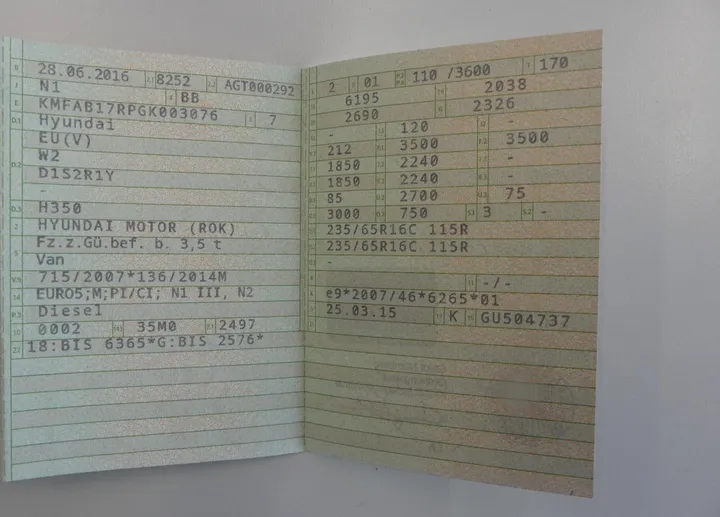 28.06.2016 8252 AGT000292
N1 BB
KMFAB17RPGK003076 7
Hyundai
EU(V)
W2
D1S2R1Y
-
H350
HYUNDAI MOTOR (ROK)
Fz.z.Gü.bef. b. 3,5 t
Van
715/2007*136/2014M
EURO5;M;PI/CI; N1 III, N2
Diesel
0002 35M0 2497
18:BIS 6365*G:BIS 2576*
2 01 110 /3600 170
6195 2038
2690 2326
- 120 -
212 3500 3500
1850 2240 -
1850 2240 -
85 2700 75
3000 750 3 -
235/65R16C 115R
235/65R16C 115R
-
-/-
e9*2007/46*6265*01
25.03.15 K GU504737